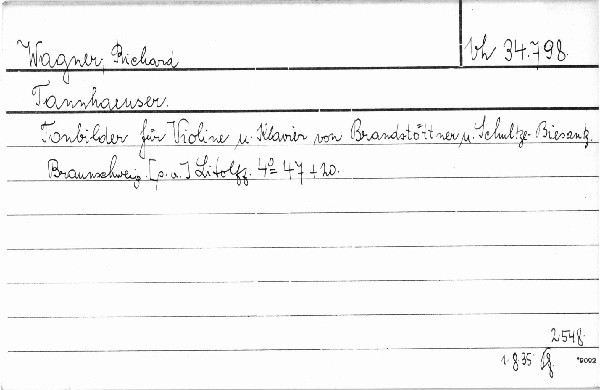 Wagner, Richard
Vh 34.798.
Tannhaeuser.
Tonbilder für Violine u. Klavier von Brandstöttner u. Schultze-Biesantz.
Braunschweig. [s. a.] Litolff. 4º = 47 + 20.
2.548.
1. 8. 35
*9092